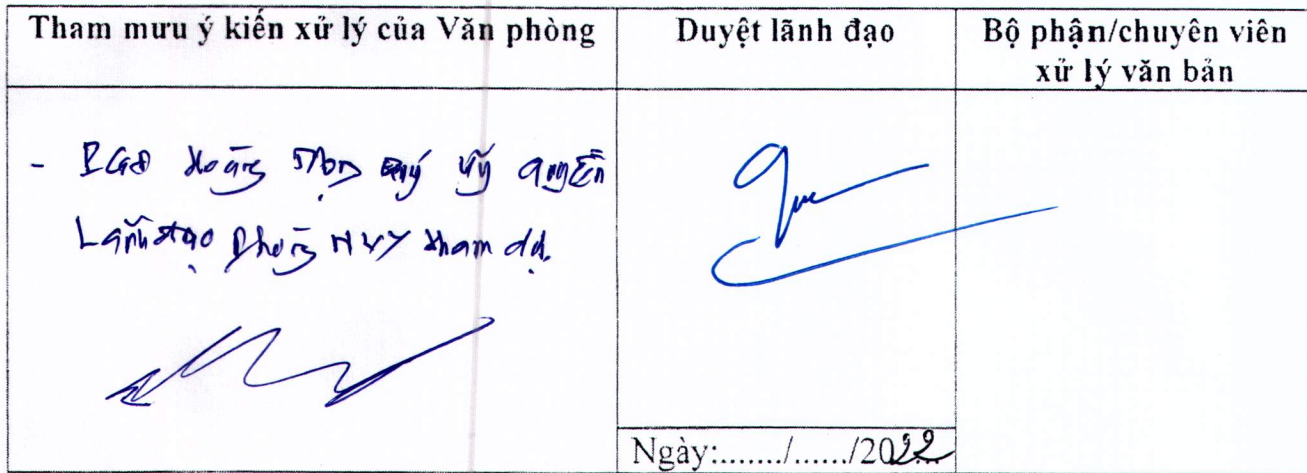 Tham mưu ý kiến xử lý của Văn phòng
Duyệt lãnh đạo
Bộ phận/chuyên viên
xử lý văn bản
- PGĐ Hoàng quý uỷ quyền
Lãnh đạo phòng NVY tham dự.
Ngày:....../....../2022